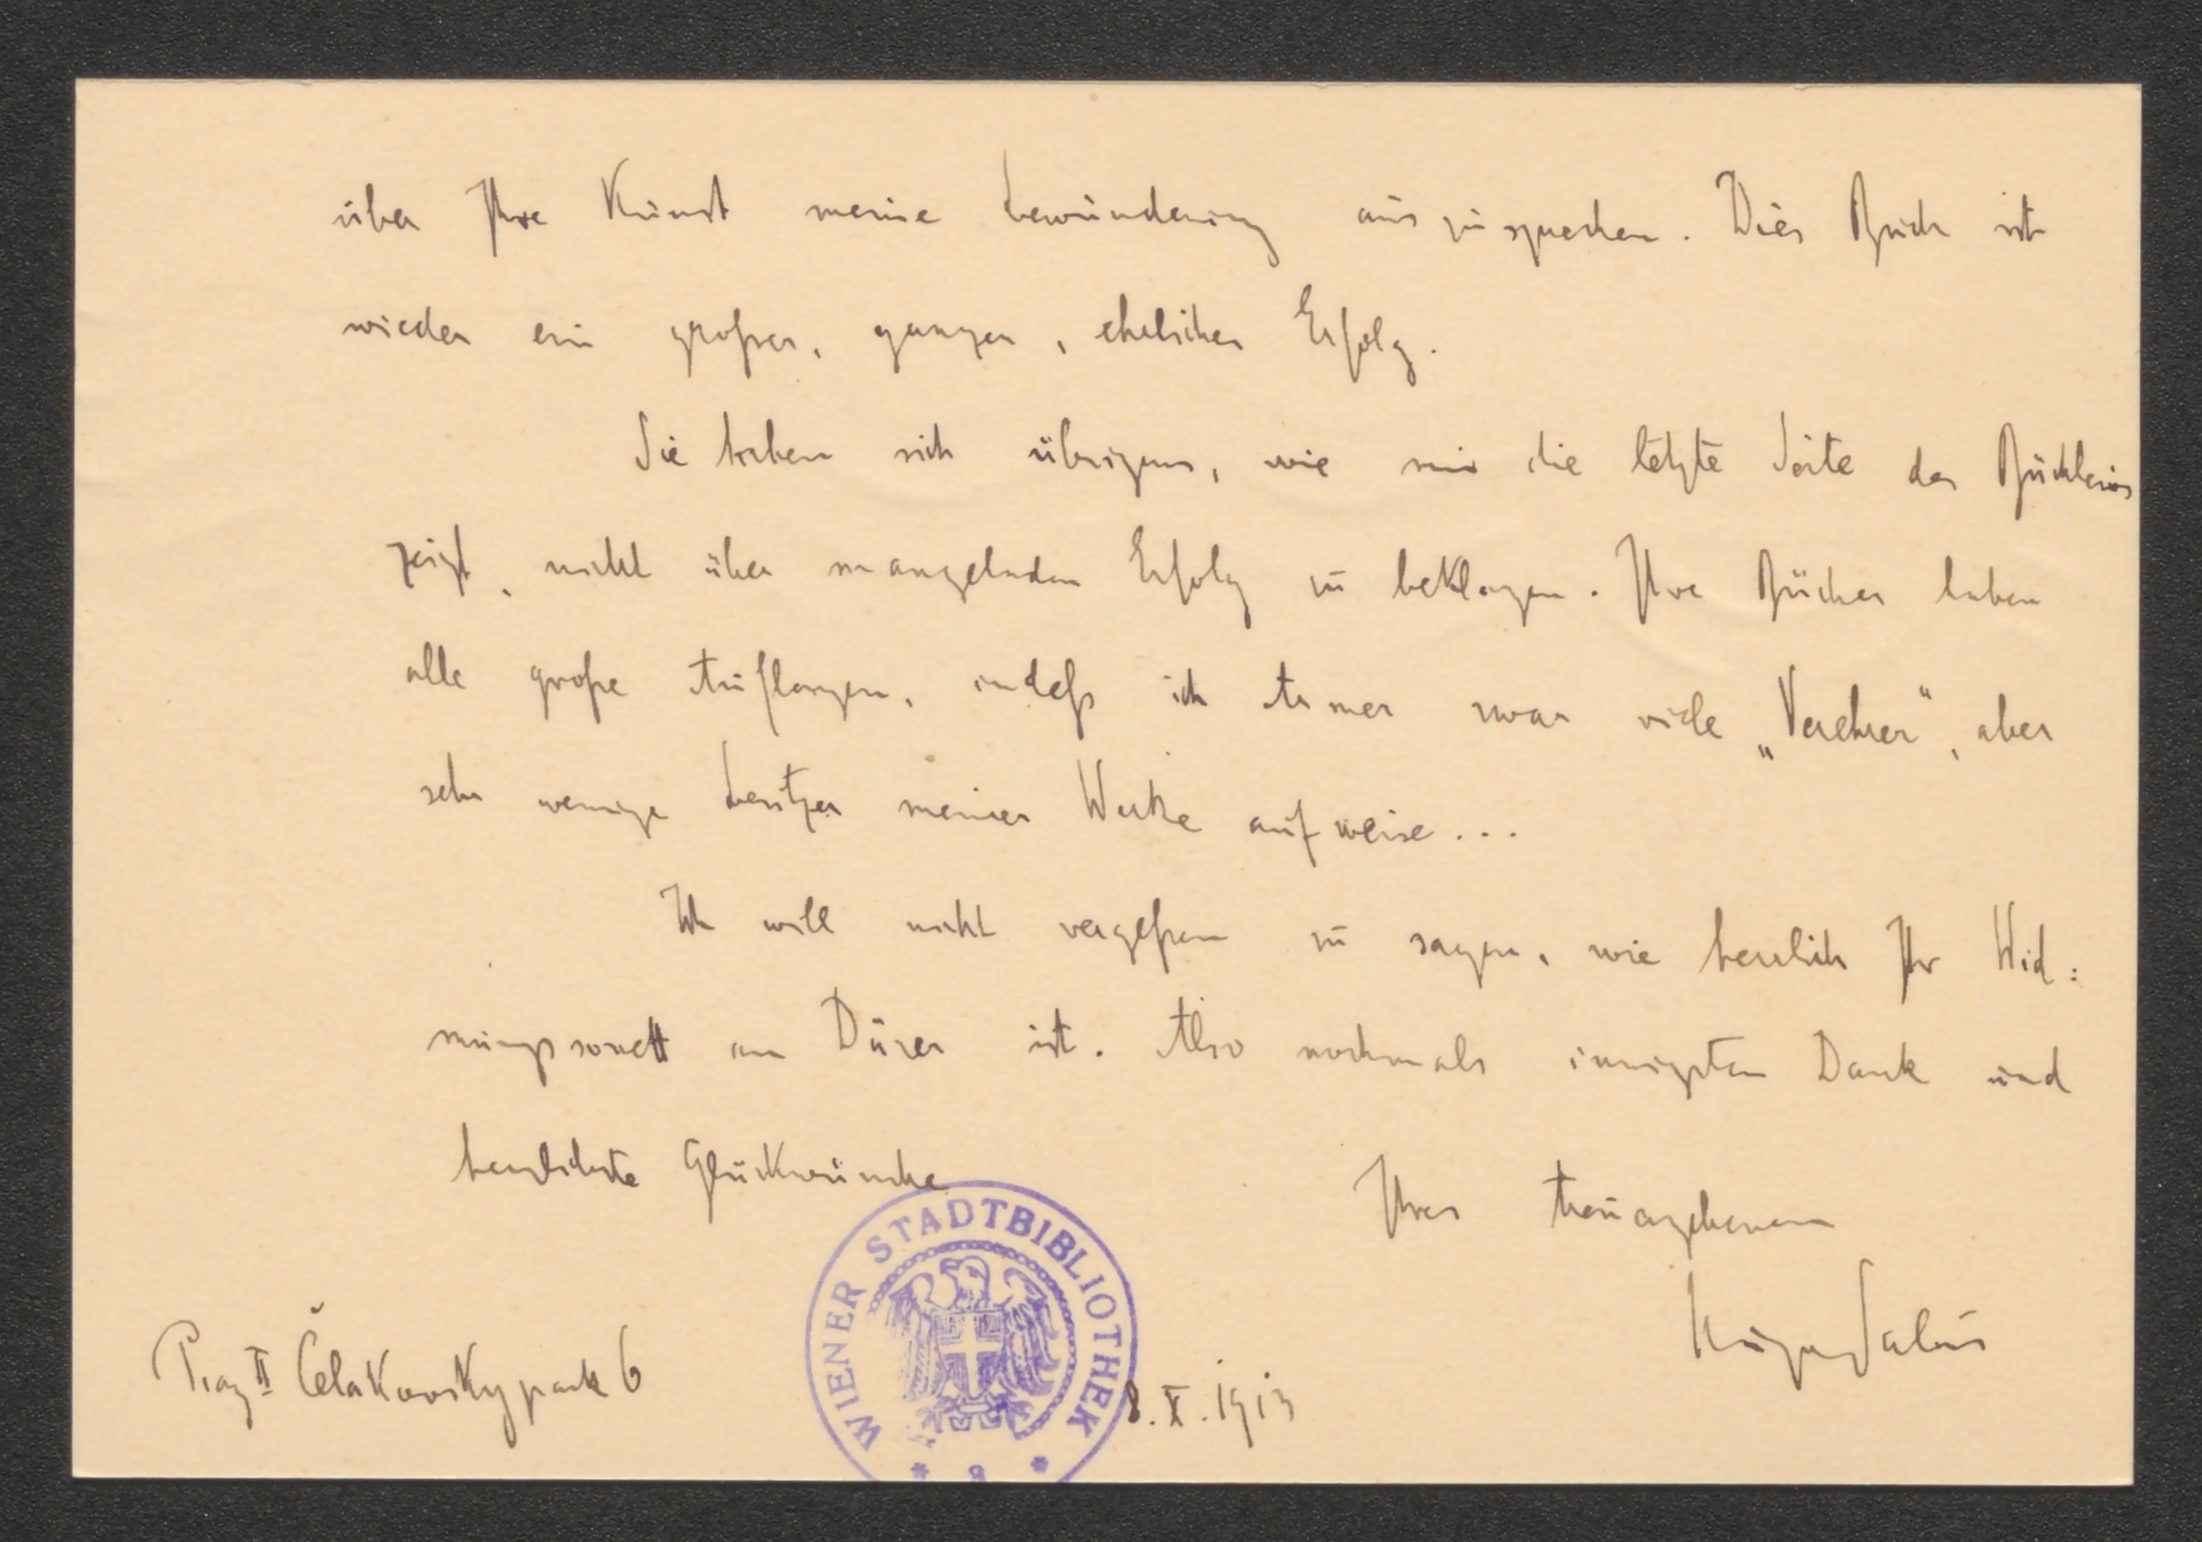 über Ihre Kunst meine Bewunderung auszusprechen. Dies Buch ist
wieder ein großer, ganzer, ehrlicher Erfolg.
Sie haben sich übrigens, wie mir die letzte Seite des Büchleins
zeigt, nicht über mangelnden Erfolg zu beklagen. Ihre Bücher haben
alle große Auflagen, indeß ich Armer zwar viele „Verehrer“, aber
sehr wenige Besitzer meiner Werke aufweise...
Ich will nicht vergeßen zu sagen, wie herrlich Ihr Wid:
mungssonett an Dürer ist. Also nochmals innigsten Dank und
herzlichste Glückwünsche
Ihres treuergebenen
Hugo Salus
Prag II Čelakovskypark 6
8. X. 1913
WIENER STADTBIBLIOTHEK